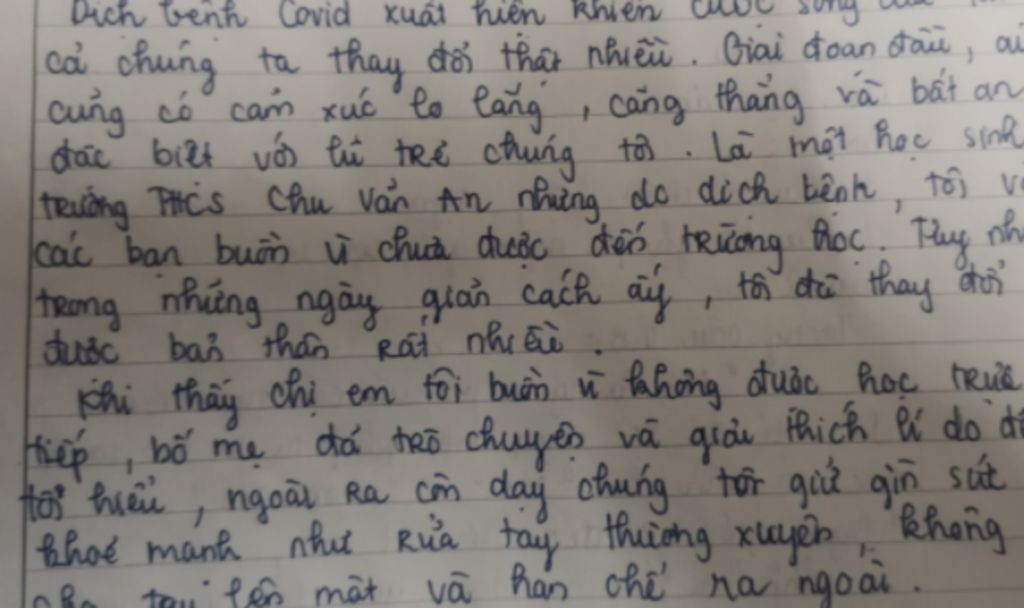 Dịch bệnh Covid xuất hiện khiến cuộc sống của
cả chúng ta thay đổi thật nhiều. Giai đoạn đầu, ai
cũng có cảm xúc lo lắng, căng thẳng và bất an
đặc biệt với lũ trẻ chúng tôi. Là một học sinh
trường THCS Chu Văn An nhưng do dịch bệnh, tôi
các bạn buồn vì chưa được đến trường học. Tuy
trong những ngày giãn cách ấy, tôi đã thay đổi
được bản thân rất nhiều.
Khi thấy chị em tôi buồn vì không được học
tiếp, bố mẹ đã trò chuyện và giải thích lí do
tôi hiểu, ngoài ra còn dạy chúng tôi giữ gìn sức
khoẻ mạnh như rửa tay thường xuyên, không
tay lên mặt và hạn chế ra ngoài.